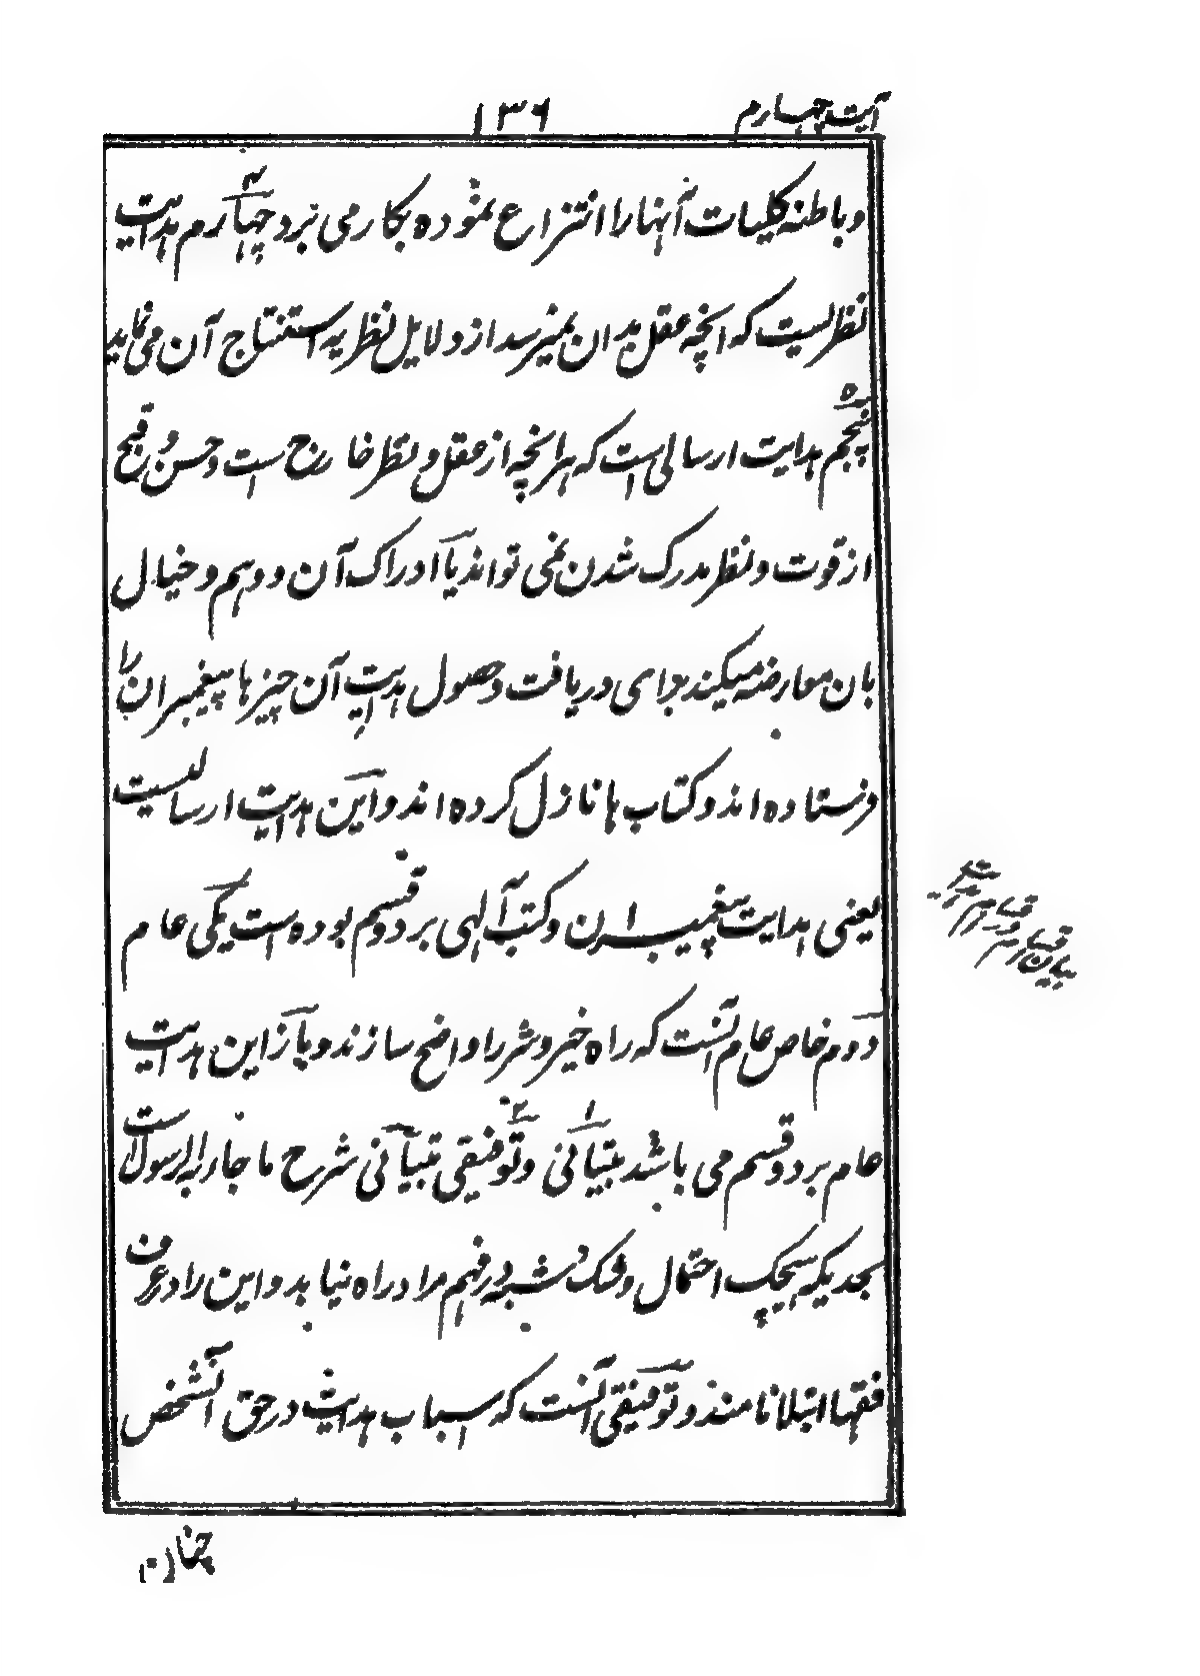 آیت چہارم
۱۳۶
وباطنہ کلیات آنہارا انتزاع نمودہ بکار می برد چہارم ہدایت
نظریست کہ انچہ عقل بدان نمیرسد از دلایل نظریہ استنتاج آن می نماید
پنجم ہدایت ارسالی است کہ ہر انچہ از عقل و نظر خارج است و حسن و قبح
از قوت و نظر مدرک شدن نمی تواند یا ادراک آن و وہم و خیال
بان معارضہ میکند برای دریافت و حصول ہدایت آن چیزہا پیغمبران را
فرستادہ اند و کتاب ہا نازل کردہ اند و این ہدایت ارسالیست
یعنی ہدایت پیغمبران و کتب آلہی بر دو قسم بودہ است یکی عام
دوم خاص عام آنست کہ راہ خیر و شر را واضح سازند و باز این ہدایت
عام بر دو قسم می باشد تبیانی و توفیقی تبیانی شرح ما جاء بہ الرسول است
بحدیکہ ہیچیک احتمال و شک و شبہ در فہم مراد راہ نیابد و این را در عرف
فقہا ابتلا نامند و توفیقی آنست کہ اسباب ہدایت در حق آنشخص
چنان